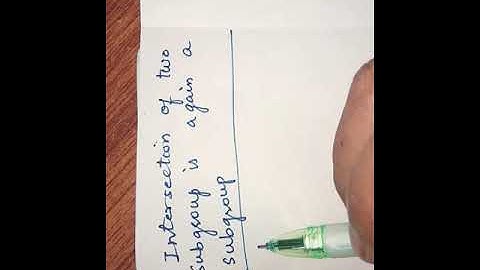 Intersection of two
subgroup is again a
subgroup